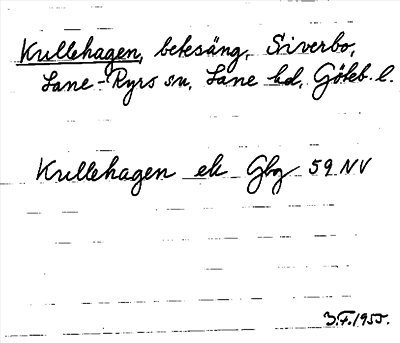 Kullehagen, betesäng, Siverbo,
Lane-Ryrs sn, Lane hd, Göteb. l.
Kullehagen ek Gbg 59 NV
3.F.1955.